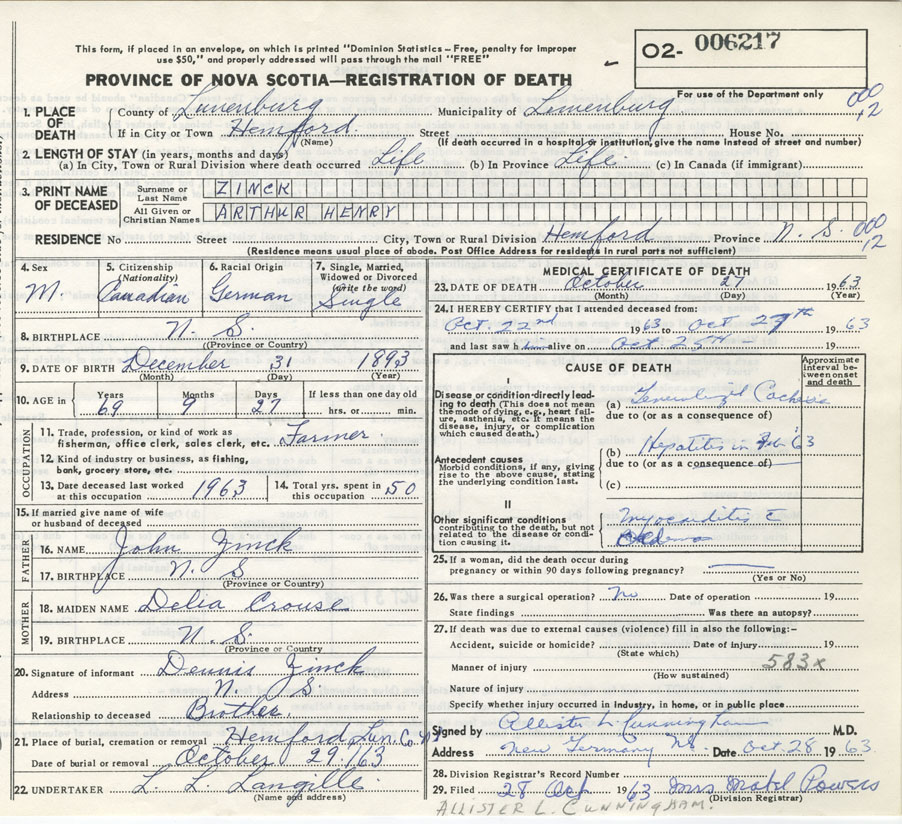 This form, if placed in an envelope, on which is printed "Dominion Statistics – Free, penalty for improper
use $50," and properly addressed will pass through the mail "FREE"
O2- 006217
PROVINCE OF NOVA SCOTIA—REGISTRATION OF DEATH
For use of the Department only
1. PLACE OF DEATH
County of Lunenburg Municipality of Lunenburg 000
If in City or Town Hemford. Street House No. 12
(Name) (If death occurred in a hospital or institution, give the name instead of street and number)
2. LENGTH OF STAY (in years, months and days)
(a) In City, Town or Rural Division where death occurred Life (b) In Province Life. (c) In Canada (if immigrant)
3. PRINT NAME OF DECEASED
Surname or Last Name ZINCK
All Given or Christian Names ARTHUR HENRY
RESIDENCE No Street City, Town or Rural Division Hemford Province N. S. 000
12
(Residence means usual place of abode. Post Office Address for residents in rural parts not sufficient)
4. Sex
M.
5. Citizenship
(Nationality)
Canadian
6. Racial Origin
German
7. Single, Married,
Widowed or Divorced
(write the word)
Single
8. BIRTHPLACE N. S.
(Province or Country)
9. DATE OF BIRTH December 31 1893
(Month) (Day) (Year)
10. AGE in Years Months Days If less than one day old
69 9 27 hrs. or min.
OCCUPATION
11. Trade, profession, or kind of work as
fisherman, office clerk, sales clerk, etc. Farmer
12. Kind of industry or business, as fishing,
bank, grocery store, etc.
13. Date deceased last worked
at this occupation 1963
14. Total yrs. spent in
this occupation 50
15. If married give name of wife
or husband of deceased
FATHER
16. NAME John Zinck
17. BIRTHPLACE N. S
(Province or Country)
MOTHER
18. MAIDEN NAME Delia Crouse
19. BIRTHPLACE N. S.
(Province or Country)
20. Signature of informant Dennis Zinck
Address N. S.
Relationship to deceased Brother.
21. Place of burial, cremation or removal Hemford Lun. Co.
Date of burial or removal October 29/63
22. UNDERTAKER L. L. Langille.
(Name and address)
MEDICAL CERTIFICATE OF DEATH
23. DATE OF DEATH October 27 1963
(Month) (Day) (Year)
24. I HEREBY CERTIFY that I attended deceased from:
Oct. 22nd 1963 Oct 27th 1963
and last saw him alive on Oct 25th 19
CAUSE OF DEATH
Approximate
interval be-
tween onset
and death
I
Disease or condition directly lead-
ing to death (This does not mean
the mode of dying, e.g., heart fail-
ure, asthenia, etc. It means the
disease, injury, or complication
which caused death.)
(a) Generalized Cachexia
due to (or as a consequence of)
Antecedent causes
Morbid conditions, if any, giving
rise to the above cause, stating
the underlying condition last.
(b) Hepatitis in Feb '63
due to (or as a consequence of)
(c)
II
Other significant conditions
contributing to the death, but not
related to the disease or condi-
tion causing it.
Myocarditis c
Oedema
25. If a woman, did the death occur during
pregnancy or within 90 days following pregnancy?
(Yes or No)
26. Was there a surgical operation? No Date of operation 19
State findings Was there an autopsy?
27. If death was due to external causes (violence) fill in also the following:–
Accident, suicide or homicide? Date of injury 19
(State which)
Manner of injury 583x
(How sustained)
Nature of injury
Specify whether injury occurred in industry, in home, or in public place
Signed by Allister L. Cunningham M.D.
Address New Germany NS. Date Oct 28 1963.
28. Division Registrar's Record Number
29. Filed 28 Oct 1963 Mrs Mabel Powers
(Division Registrar)
ALLISTER L. CUNNINGHAM.